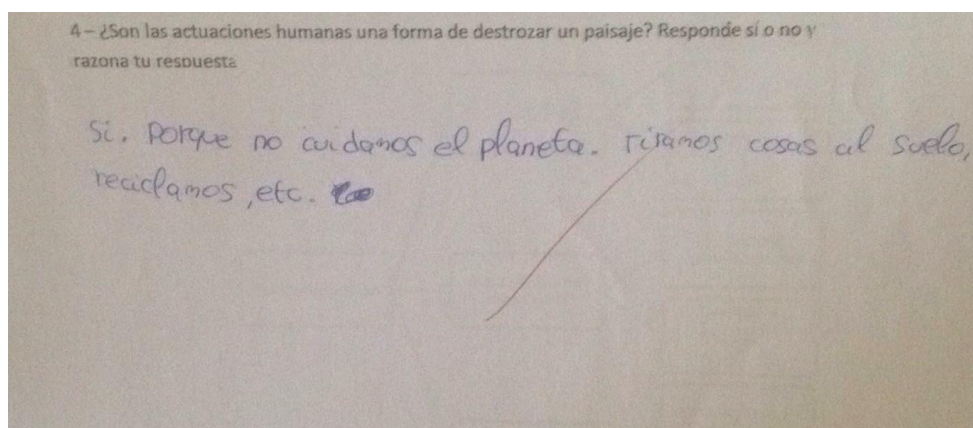 4 – ¿Son las actuaciones humanas una forma de destrozar un paisaje? Responde sí o no y
razona tu respuesta
Si. Porque no cuidamos el planeta. Tiramos cosas al suelo,
reciclamos, etc.